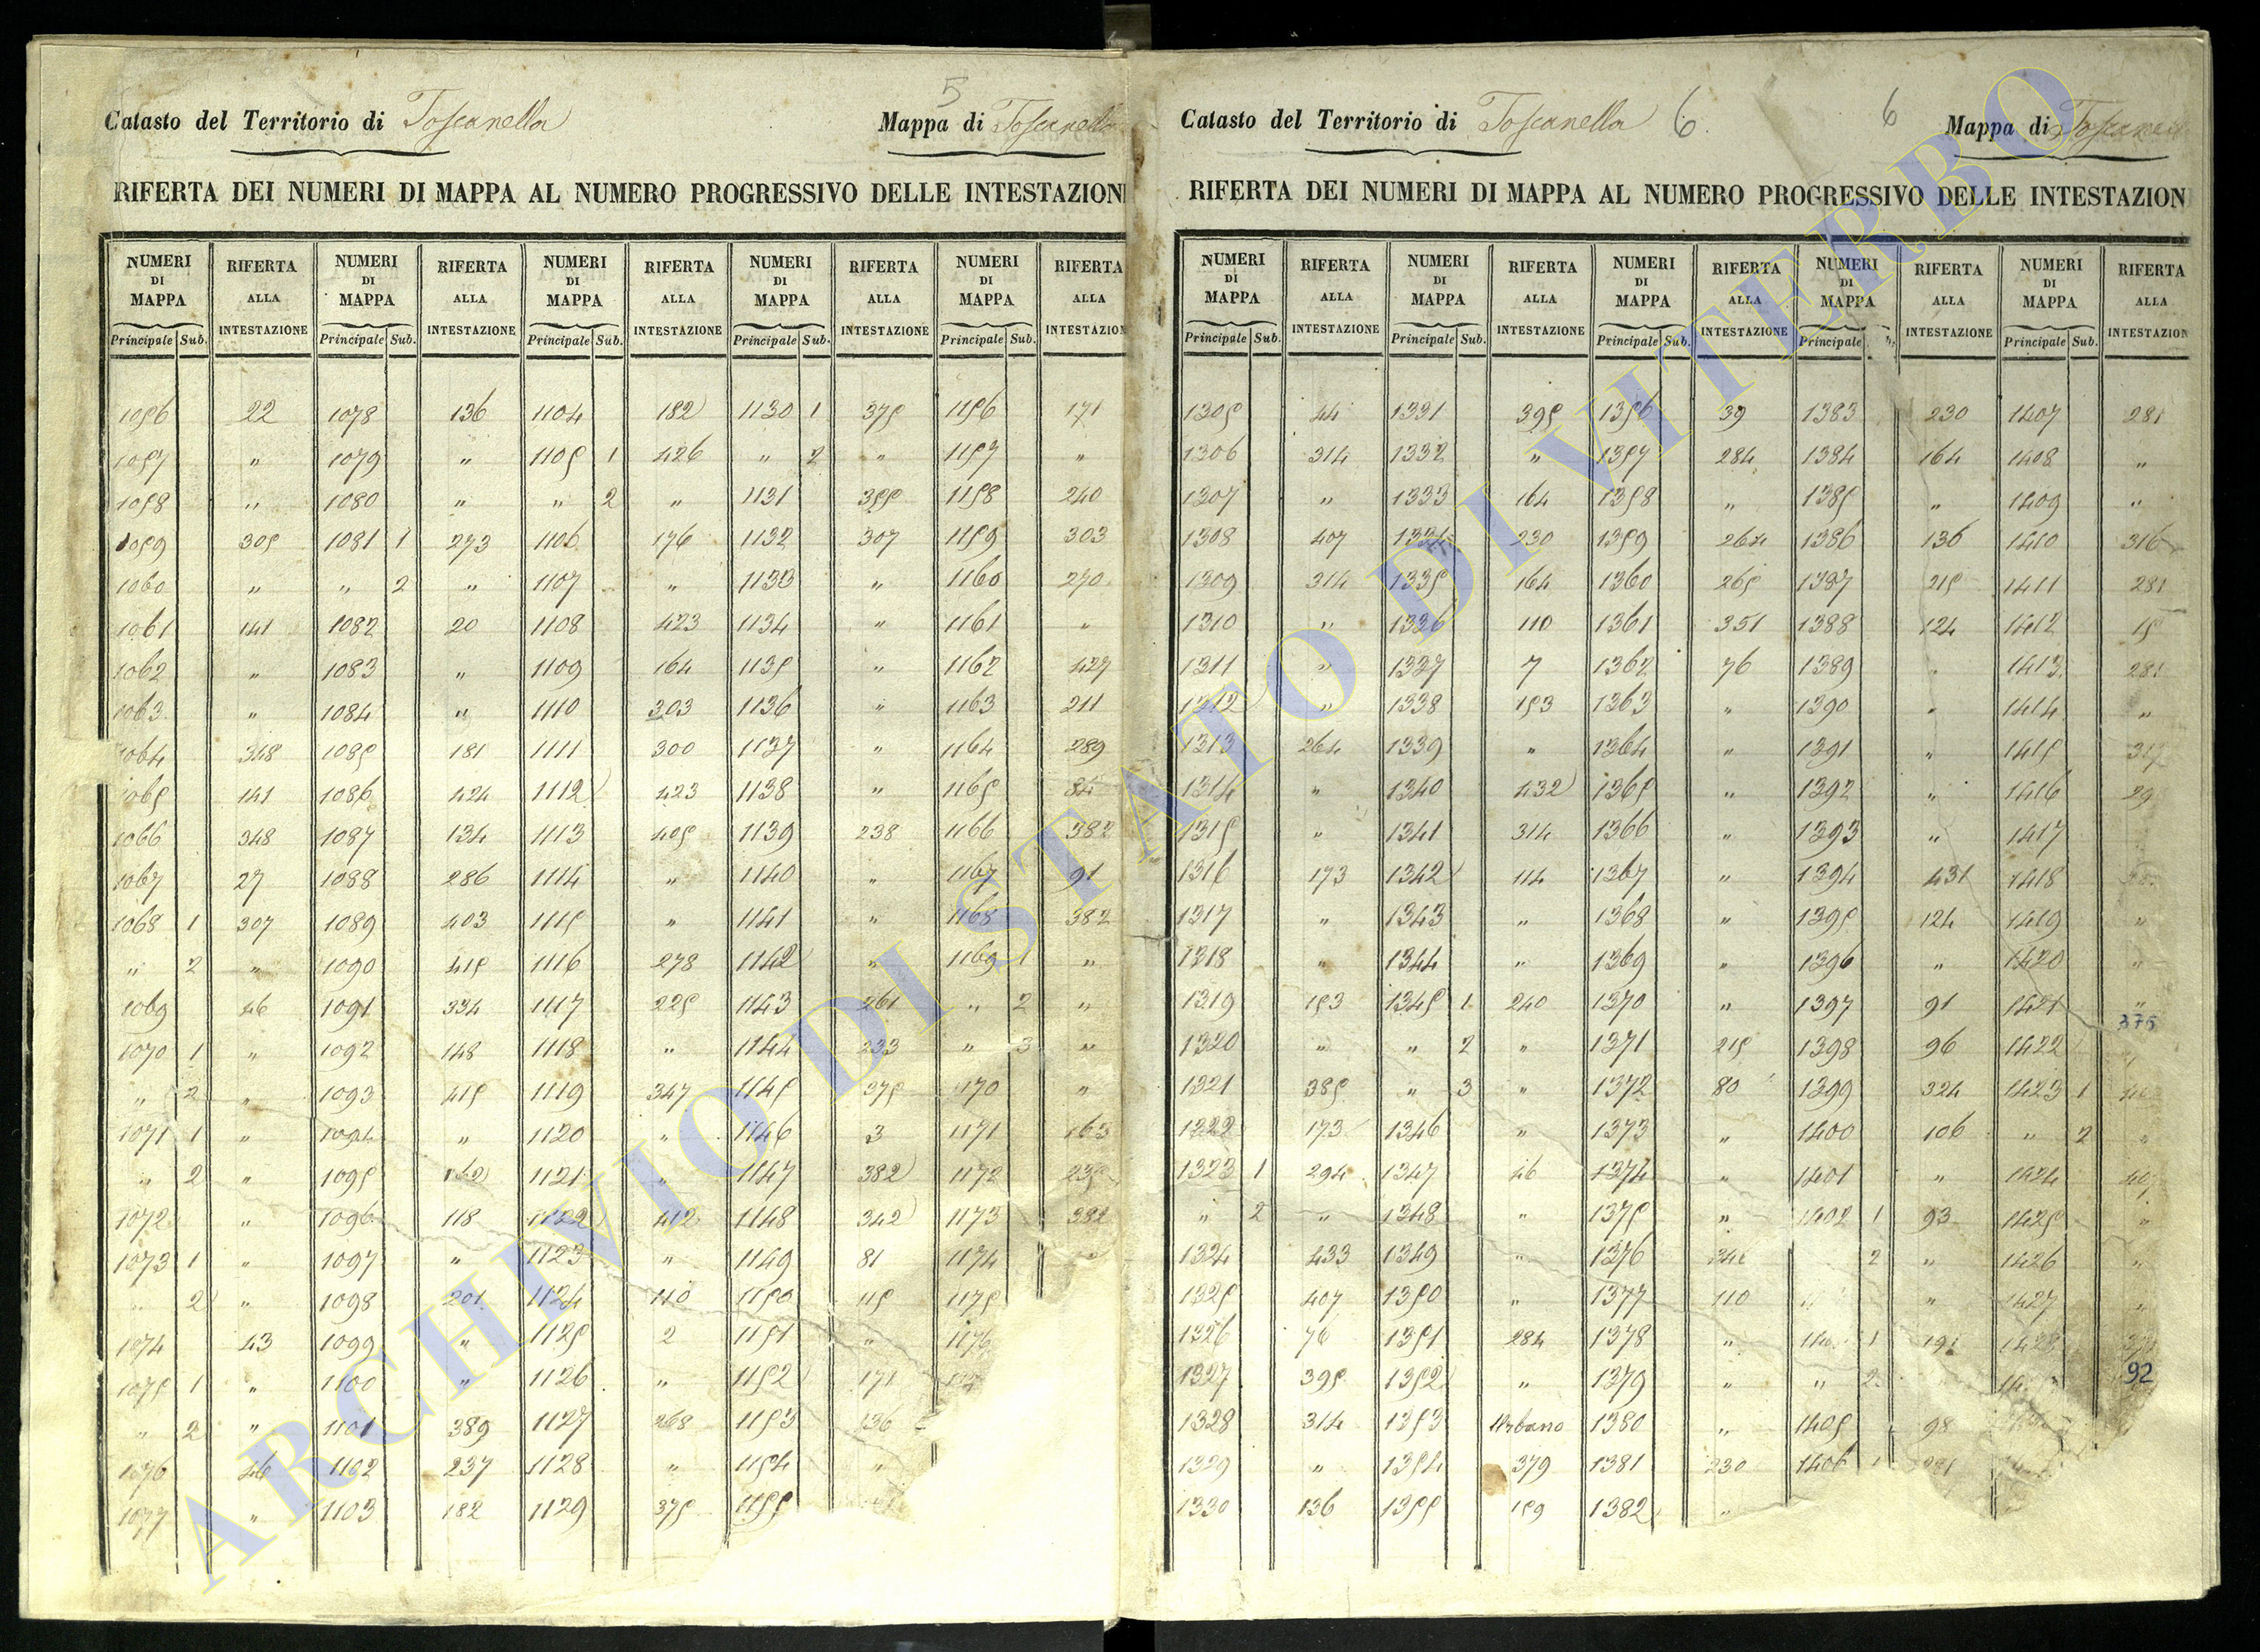 5
Catasto del Territorio di Toscanella Mappa di Toscanella
RIFERTA DEI NUMERI DI MAPPA AL NUMERO PROGRESSIVO DELLE INTESTAZIONI
NUMERI DI MAPPA RIFERTA ALLA INTESTAZIONE NUMERI DI MAPPA RIFERTA ALLA INTESTAZIONE NUMERI DI MAPPA RIFERTA ALLA INTESTAZIONE NUMERI DI MAPPA RIFERTA ALLA INTESTAZIONE NUMERI DI MAPPA RIFERTA ALLA INTESTAZION
Principale Sub. Principale Sub. Principale Sub. Principale Sub. Principale Sub.
1056 22 1078 136 1104 182 1130 1 375 1156 171
1057 " 1079 " 1105 1 426 " 2 " 1157 "
1058 " 1080 " " 2 " 1131 355 1158 240
1059 305 1081 1 273 1106 176 1132 307 1159 303
1060 " " 2 " 1107 " 1133 " 1160 270
1061 141 1082 20 1108 423 1134 " 1161 "
1062 " 1083 " 1109 164 1135 " 1162 427
1063 " 1084 " 1110 303 1136 " 1163 211
1064 348 1085 181 1111 300 1137 " 1164 289
1065 141 1086 424 1112 423 1138 " 1165 84
1066 348 1087 134 1113 405 1139 238 1166 382
1067 27 1088 286 1114 " 1140 " 1167 91
1068 1 307 1089 403 1115 " 1141 " 1168 382
" 2 " 1090 415 1116 278 1142 " 1169 1 "
1069 46 1091 334 1117 225 1143 261 " 2 "
1070 1 " 1092 148 1118 " 1144 233 " 3 "
" 2 " 1093 415 1119 347 1145 375 1170 "
1071 1 " 1094 " 1120 " 1146 3 1171 163
" 2 " 1095 1121 " 1147 382 1172 235
1072 " 1096 118 1122 412 1148 342 1173 382
1073 1 " 1097 " 1123 " 1149 81 1174 "
" 2 " 1098 201 1124 110 1150 115 1175
1074 43 1099 " 1125 2 1151 " 1176
1075 1 " 1100 " 1126 " 1152 171
" 2 " 1101 389 1127 268 1153 136
1076 46 1102 237 1128 " 1154 "
1077 " 1103 182 1129 375 1155
Catasto del Territorio di Toscanella 6 6 Mappa di Toscanell
RIFERTA DEI NUMERI DI MAPPA AL NUMERO PROGRESSIVO DELLE INTESTAZION
NUMERI DI MAPPA RIFERTA ALLA INTESTAZIONE NUMERI DI MAPPA RIFERTA ALLA INTESTAZIONE NUMERI DI MAPPA RIFERTA ALLA INTESTAZIONE NUMERI DI MAPPA RIFERTA ALLA INTESTAZIONE NUMERI DI MAPPA RIFERTA ALLA INTESTAZION
Principale Sub. Principale Sub. Principale Sub. Principale Principale Sub.
1305 44 1331 395 1356 39 1383 230 1407 281
1306 314 1332 " 1357 284 1384 164 1408 "
1307 " 1333 164 1358 " 1385 " 1409 "
1308 407 1334 230 1359 264 1386 136 1410 316
1309 314 1335 164 1360 265 1387 215 1411 281
1310 " 1336 110 1361 351 1388 124 1412 15
1311 " 1337 7 1362 76 1389 " 1413 281
1312 " 1338 153 1363 " 1390 " 1414 "
1313 264 1339 " 1364 " 1391 " 1415
1314 " 1340 432 1365 " 1392 " 1416 29
1315 " 1341 314 1366 " 1393 " 1417
1316 173 1342 114 1367 " 1394 431 1418
1317 " 1343 " 1368 " 1395 124 1419 "
1318 " 1344 " 1369 " 1396 " 1420 "
1319 153 1345 1 240 1370 " 1397 91 1421 "
375
1320 " " 2 " 1371 215 1398 96 1422
1321 385 " 3 " 1372 80 1399 324 1423 1
1322 173 1346 " 1373 " 1400 106 " 2 "
1323 1 294 1347 46 1374 " 1401 " 1424
" 2 " 1348 " 1375 " 1402 1 93 1425 "
1324 433 1349 " 1376 1 2 " 1426 "
1325 407 1350 " 1377 110 " 1427 "
1326 76 1351 284 1378 " 1 1428
1327 395 1352 " 1379 " " 2 92
1328 314 1353 Urbano 1380 " 1405 98
1329 " 1354 379 1381 230 1406
1330 136 1355 159 1382 "
ARCHIVIO DI STATO DI VITERBO